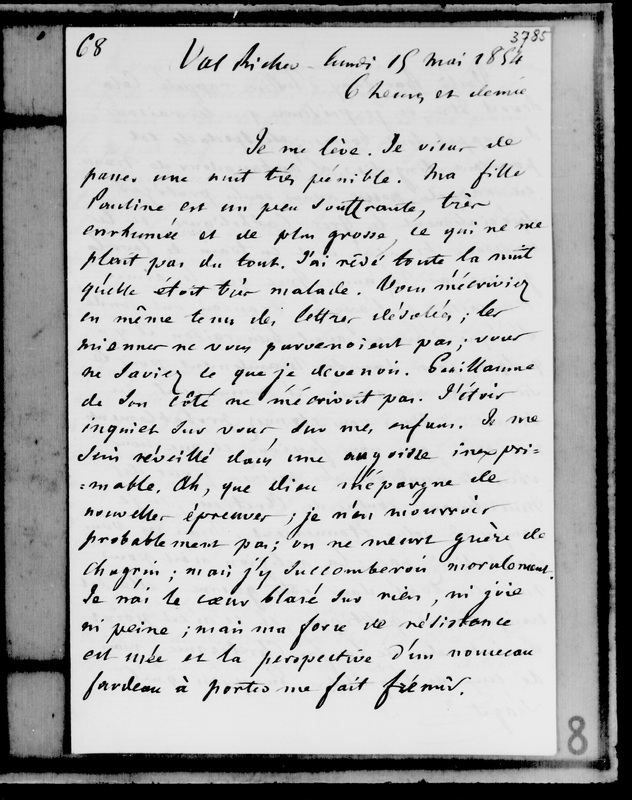 68
3785
Val Richer - lundi 15 mai 1854
6 heures et demie
Je me lève. Je viens de
passer une nuit très pénible. Ma fille
Pauline est un peu souffrante, très
enrhumée et de plus grosse, ce qui ne me
plait pas du tout. J'ai rêvé toute la nuit
qu'elle étoit très malade. Vous m'écriviez
en même tems des lettres désolées ; les
miennes ne vous parvenoient pas ; vous
ne saviez ce que je devenois. Guillaume
de son côté ne m'écrivoit pas. J'étois
inquiet sur vous sur mes enfans. Je me
suis réveillé dans une angoisse inexpri=
=mable. Oh, que dieu m'épargne de
nouvelles épreuves ; je n'en mourrois
probablement pas ; on ne meurt guère de
chagrin ; mais j'y succomberois moralement.
Je n'ai le cœur blasé sur rien, ni joie
ni peine ; mais ma force de résistance
est usée et la perspective d'un nouveau
fardeau à porter me fait frémir.
8